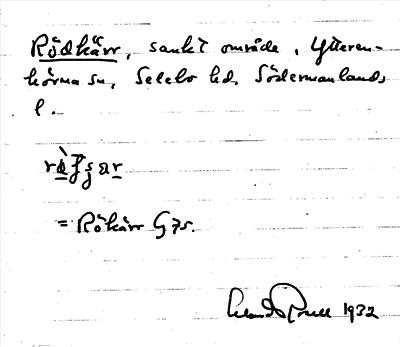 Rödkärr, sankt område, Ytteren-
hörna sn, Selebo hd, Södermanlands
l.
= Rökärr G 75.
1932